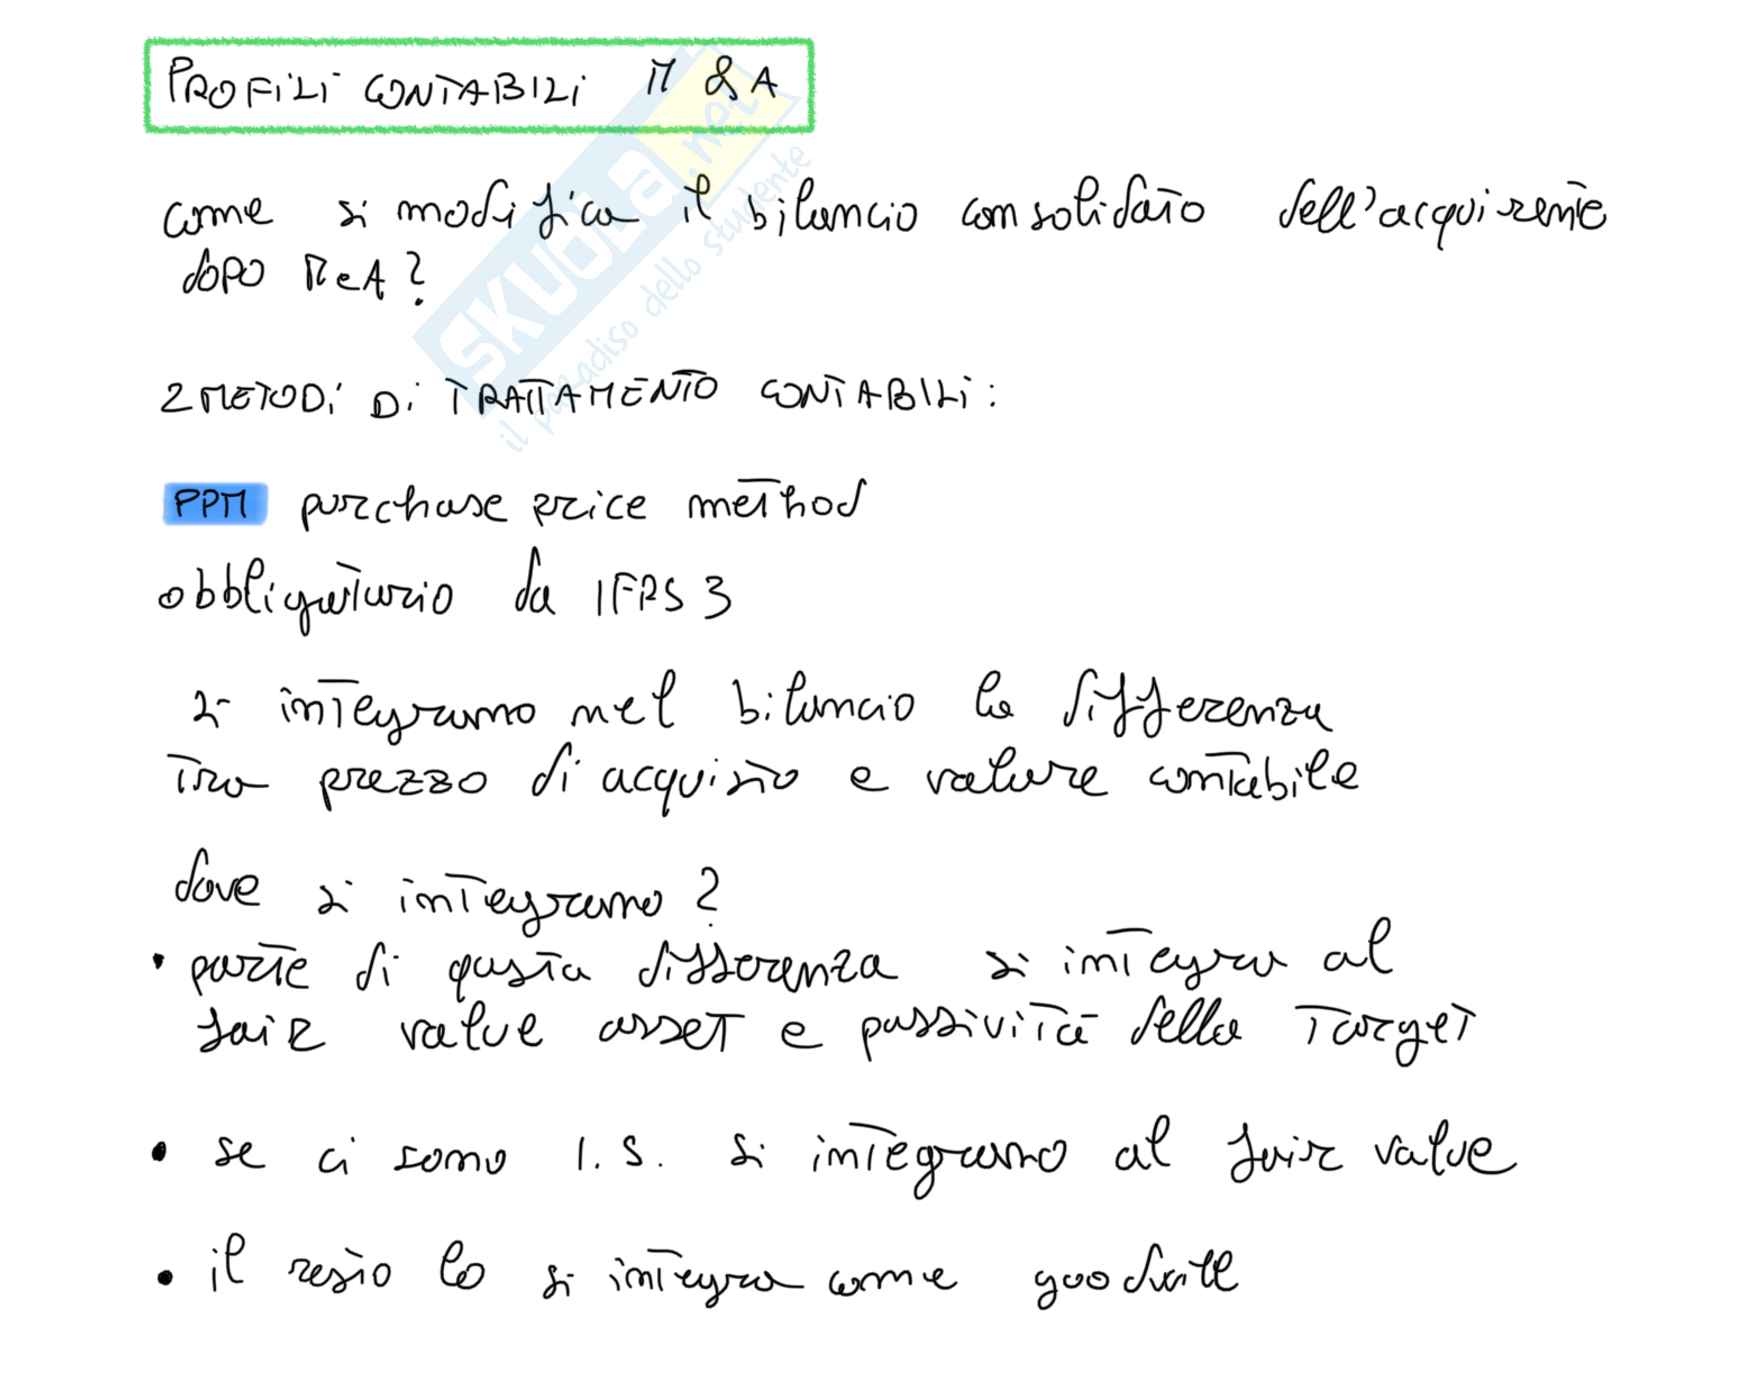 PROFILI CONTABILI M & A
come si modifica il bilancio consolidato dell'acquirente
dopo MeA?
2 METODI DI TRATTAMENTO CONTABILI:
PPM purchase price method
obbligatorio da IFRS 3
si integrano nel bilancio la differenza
tra prezzo di acquisto e valore contabile
dove si integrano?
• parte di qusta differenza si integra al
fair value asset e passività della target
• se ci sono I.S. si integrano al fair value
• il resto lo si integra come goodwill
SKUOLA.net
il paradiso dello studente